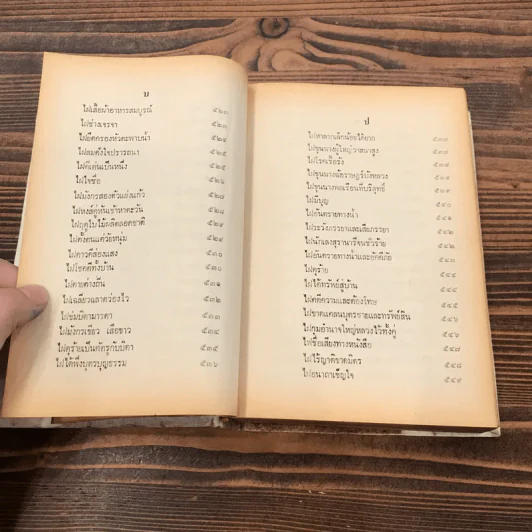 บ
ไฝเสื้อผ้าอาหารสมบูรณ์ ๕๒๓
ไฝช่างเจรจา ๕๒๔
ไฝยึดครองหัวตะพาบน้ำ ๕๒๔
ไฝสมดังใจปรารถนา ๕๒๕
ไฝดีเด่นเป็นหนึ่ง ๕๒๕
ไฝใจซื่อ ๕๒๖
ไฝมังกรสองตัวแย่งแก้ว ๕๒๘
ไฝหงส์คู่หันเข้าหาตะวัน ๕๒๘
ไฝฤดูใบไม้ผลิตลอดชาติ ๕๒๙
ไฝตั้งตนแต่วัยหนุ่ม ๕๒๙
ไฝดาวดีส่องแสง ๕๓๐
ไฝโชคดีทั้งบ้าน ๕๓๐
ไฝตายต่างถิ่น ๕๓๑
ไฝเฉลียวฉลาดว่องไว ๕๓๒
ไฝข่มบิดามารดา ๕๓๓
ไฝมังกรเขียว เสือขาว ๕๓๔
ไฝดุร้ายเป็นศัตรูกับบิดา ๕๓๕
ไฝได้พึ่งบุตรบุญธรรม ๕๓๖
ป
ไฝหาลาภเล็กน้อยได้ยาก ๕๓๗
ไฝขุนนางผู้ใหญ่วาสนาสูง ๕๓๗
ไฝโรคเรื้อรัง ๕๓๘
ไฝขุนนางฉ้อราษฎร์บังหลวง ๕๓๙
ไฝขุนนางตงฉินที่บริสุทธิ์ ๕๓๙
ไฝมีบุญ ๕๔๐
ไฝอันตรายทางน้ำ ๕๔๑
ไฝระวังภรรยาและสมภรรยา ๕๔๒
ไฝนักเลงสุรานารีจนชั่วร้าย ๕๔๒
ไฝอันตรายทางน้ำและอัคคีภัย ๕๔๓
ไฝดุร้าย ๕๔๔
ไฝได้ทรัพย์สู่บ้าน ๕๔๔
ไฝคดีความและต้องโทษ ๕๔๕
ไฝขาดแคลนบุตรชายและทรัพย์สิน ๕๔๖
ไฝกุมอำนาจใหญ่หลวงไว้ทั้งคู่ ๕๔๗
ไฝชื่อเสียงทางหนังสือ ๕๔๘
ไฝไร้ญาติขาดมิตร ๕๔๘
ไฝอนาถาเข็ญใจ ๕๔๙